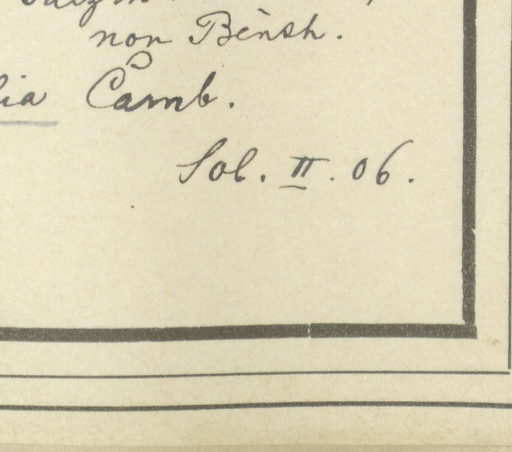 non Bènth.
lia Camb.
Sol. II. 06.